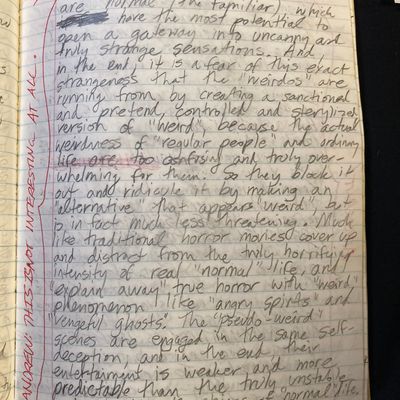 are normal (the familiar), which
have the most potential to
open a gateway into uncanny and
truly strange sensations. And,
in the end, it is a fear of this exact
strangeness that the "weirdos" are
running from by creating a sanctioned
and pretend, controlled and sterylized
version of "weird", because the actual
weirdness of "regular people" and ordinary
life are too confusing and truly over-
whelming for them. So they block it
out and ridicule it by making an
"alternative" that appears "weird", but
is in fact much less threatening. Much
like traditional horror movies cover up
and distract from the truly horrifying
intensity of real "normal" life, and
"explain away" true horror with "weird"
phenomenon like "angry spirits" and
"vengeful ghosts." The "pseudo-weird"
scenes are engaged in the same self-
deception, and in the end their
entertainment is weaker and more
predictable than the truly unstable
of normal life,
ANDREW: THIS IS NOT INTERESTING AT ALL.